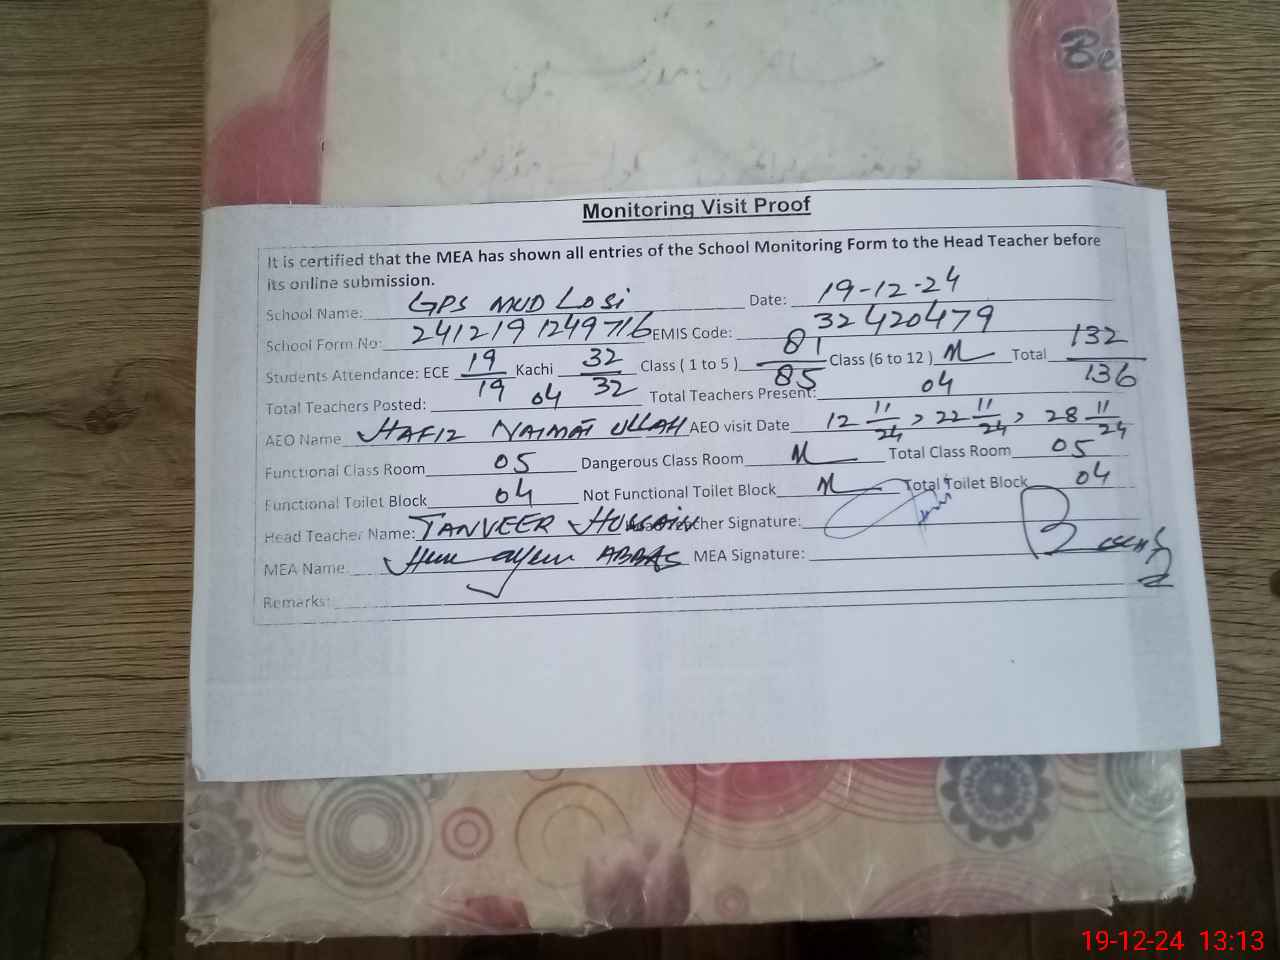 Be
Monitoring Visit Proof
It is certified that the MEA has shown all entries of the School Monitoring Form to the Head Teacher before
its online submission.
School Name: GPS MUD LOSi Date: 19-12-24
School Form No: 241219 1249716 EMIS Code: 32420479
Students Attendance: ECE 19/19 Kachi 32/32 Class ( 1 to 5 ) 81/85 Class (6 to 12 ) Total 132/136
Total Teachers Posted: 04 Total Teachers Present: 04
AEO Name HAFIZ NAIMAT ULLAH AEO visit Date 12 11/24, 22 11/24, 28 11/24
Functional Class Room 05 Dangerous Class Room Total Class Room 05
Functional Toilet Block 04 Not Functional Toilet Block Total Toilet Block 04
Head Teacher Name: TANVEER HUSSAIN Head Teacher Signature:
MEA Name ABBAS MEA Signature:
Remarks:
19-12-24 13:13